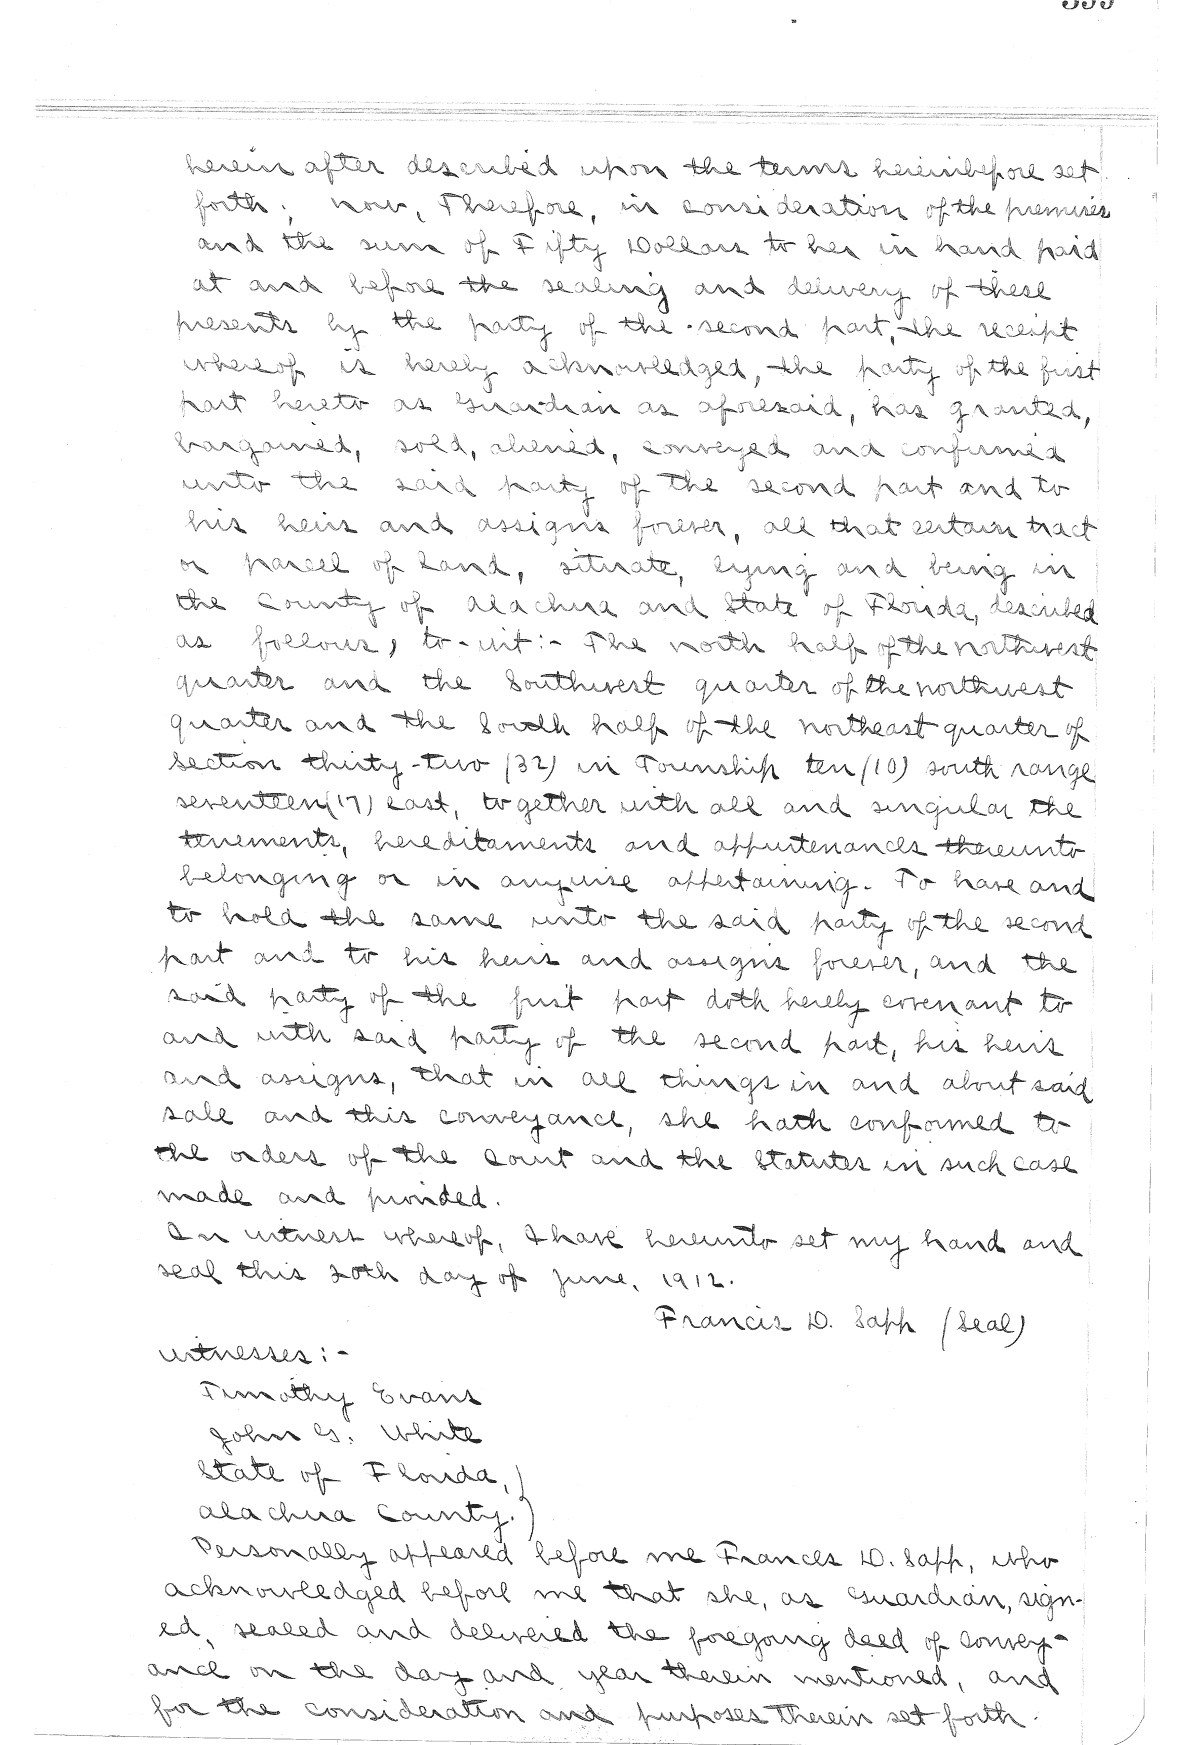 herein after described upon the terms hereinbefore set
forth; now, Therefore, in consideration of the premises
and the sum of Fifty Dollars to her in hand paid
at and before the sealing and delivery of these
presents by the party of the second part, the receipt
whereof is hereby acknowledged, the party of the first
part hereto as Guardian as aforesaid, has granted,
bargained, sold, aliened, conveyed and confirmed
unto the said party of the second part and to
his heirs and assigns forever, all that certain tract
or parcel of land, situate, lying and being in
the County of Alachua and State of Florida, described
as follows, to-wit:- The north half of the northwest
quarter and the Southwest quarter of the northwest
quarter and the South half of the northeast quarter of
Section thirty-two (32) in Township ten (10) south range
seventeen (17) east, together with all and singular the
tenements, hereditaments and appurtenances thereunto
belonging or in anywise appertaining. To have and
to hold the same unto the said party of the second
part and to his heirs and assigns forever, and the
said party of the first part doth hereby covenant to
and with said party of the second part, his heirs
and assigns, that in all things in and about said
sale and this conveyance, she hath conformed to
the orders of the Court and the Statutes in such case
made and provided.
In witness whereof, I have hereunto set my hand and
seal this 20th day of June, 1912.
Francis D. Sapp (Seal)
witnesses:-
Timothy Evans
John G. White
State of Florida,)
Alachua County.)
Personally appeared before me Frances D. Sapp, who
acknowledged before me that she, as Guardian, sign-
ed, sealed and delivered the foregoing deed of convey-
ance on the day and year therein mentioned, and
for the consideration and purposes therein set forth.